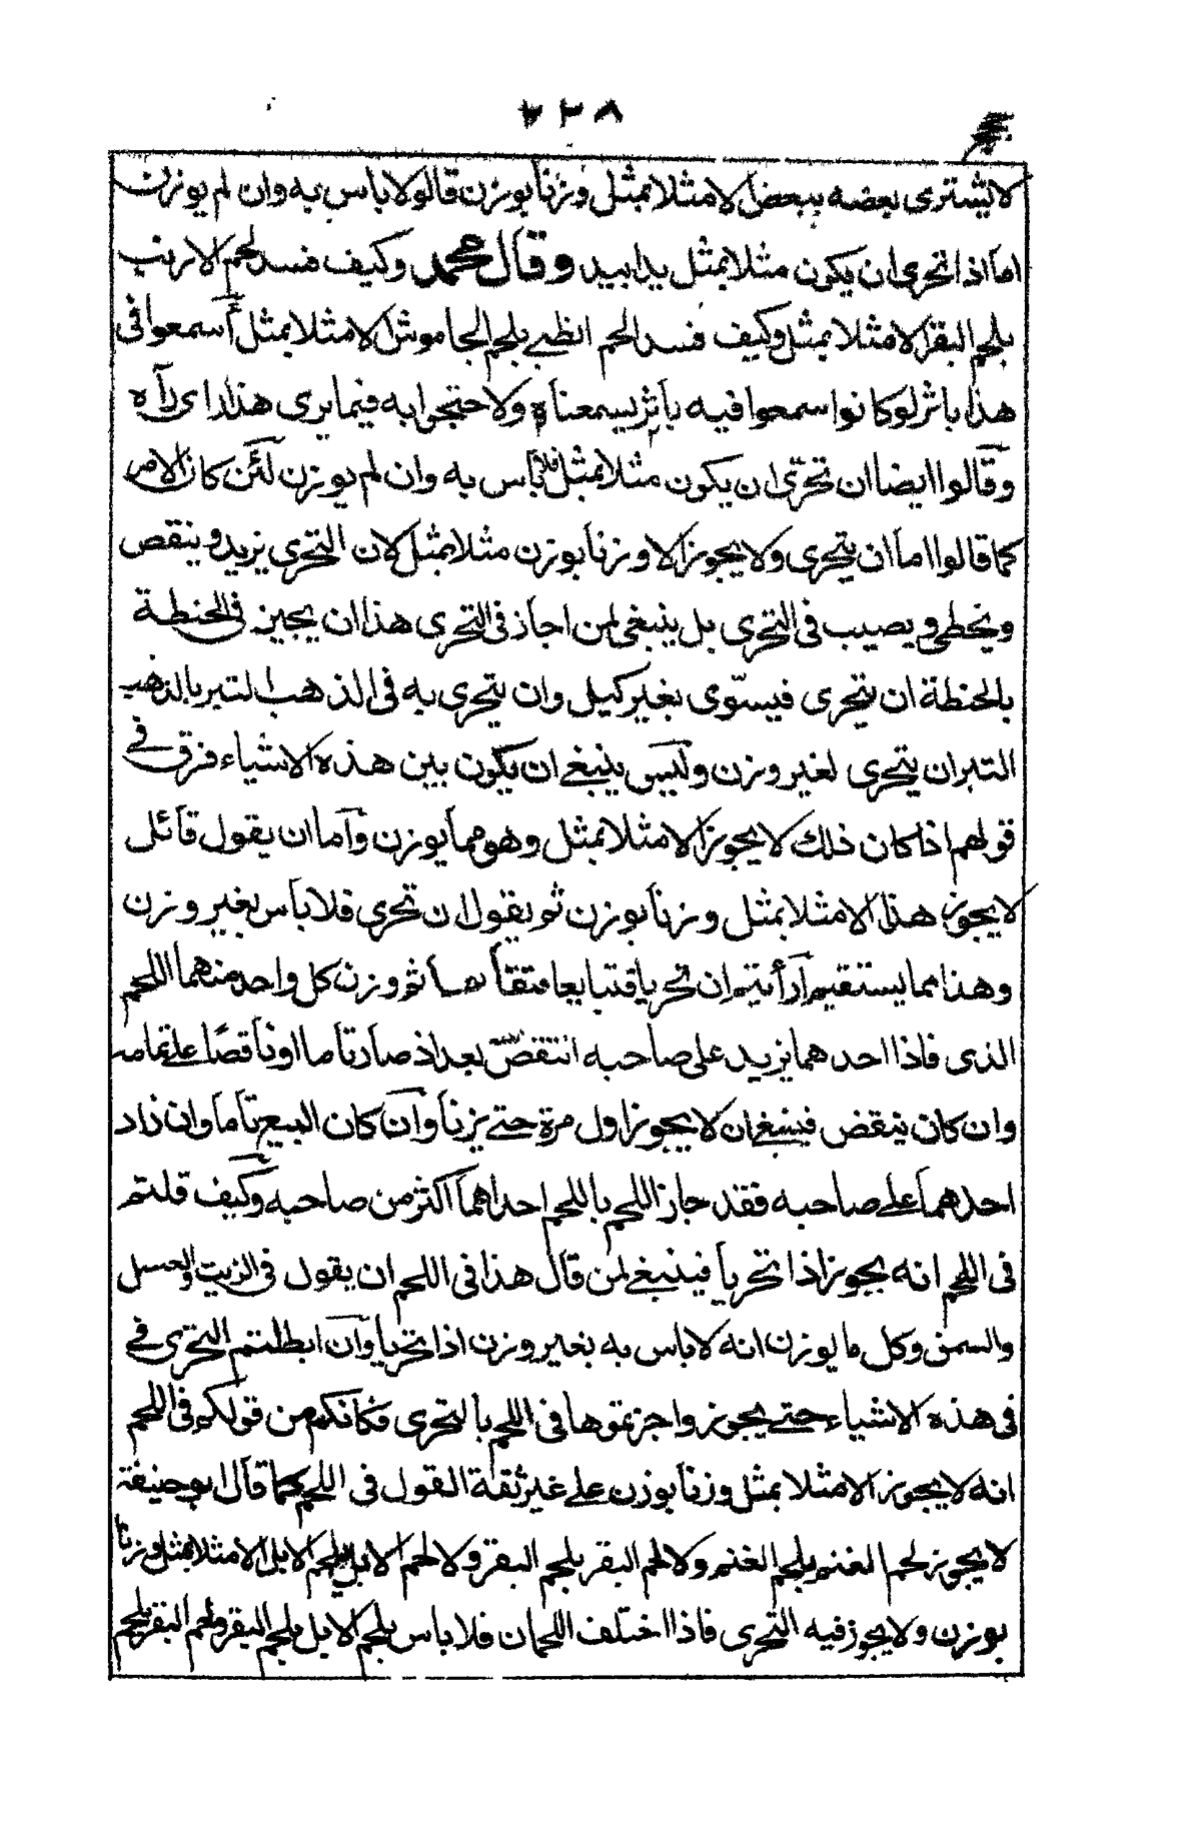 ٢٣٨
لا يشترى بعضه ببعض الا مثلا بمثل وزنا بوزن قالوا لا باس به وان لم يوزن
اما اذا تحرى ان يكون مثلا بمثل يدا بيد وقال محمد وكيف فسد لحم الارنب
بلحم البقر الا مثلا بمثل وكيف فسد الحم الظبى بلحم الجاموش الا مثلا بمثل أسمعوا فى
هذا باثر لو كانوا سمعوا فيه باثر يسمعناه ولاحتجوا به فيما يرى هذا داى رآه
وقالوا ايضا ان تحرى ان يكون مثلا بمثل فلا باس به وان لم يوزن لئن كان الامر
كما قالوا اما ان يتحرى ولا يجوز الا وزنا بوزن مثلا بمثل لان التحرى يزيد وينقص
ويخطى ويصيب فى التحرى بل ينبغى لمن اجاز فى التحرى هذا ان يجيز فى الحنطة
بالحنطة ان يتحرى فيسوّى بغير كيل وان يتحرى به فى الذهب التبر بالذهب
التبر ان يتحرى لغير وزن وليس ينبغى ان يكون بين هذه الاشياء فرق فى
قولهم اذا كان ذلك لا يجوز الا مثلا بمثل وهو مما يوزن وآما ان يقول قائل
لا يجوز هذا الا مثلا بمثل وزنا بوزن ثم يقول ان تحرى فلا باس بغير وزن
وهذا مما يستقيم آرأيتم ان تحريا فتبايعا فتقابضا ثم وزن كل واحد منهما اللحم
الذى فاذا احدهما يزيد على صاحبه انتقض بعد اذ صار تاما او ناقصا على تمامه
وان كان ينقض فينبغى ان لا يجوز اول مرة حتى يزنا وآن كان البيع تاما وان زاد
احدهما على صاحبه فقد جاز اللحم باللحم احداهما اكثر من صاحبه وكيف قلتم
فى اللحم انه يجوز اذا تحريا فينبغى لمن قال هذا فى اللحم ان يقول فى الزيت والعسل
والسمن وكل ما يوزن انه لا باس به بغير وزن اذا تحريا وآن ابطلتم التحرى فى
فى هذه الاشياء حتى يجوز واجزتموها فى اللحم بالتحرى فكانكم من قولكم فى اللحم
انه لا يجوز الا مثلا بمثل وزنا بوزن على غير ثقة القول فى اللحم كما قال ابو حنيفة
لا يجوز لحم الغنم بلحم الغنم ولا لحم البقر بلحم البقر ولا لحم الابل بلحم الابل الا مثلا بمثل وزنا
بوزن ولا يجوز فيه التحرى فاذا اختلف اللحمان فلا باس بلحم الابل بلحم البقر ولحم البقر بلحم